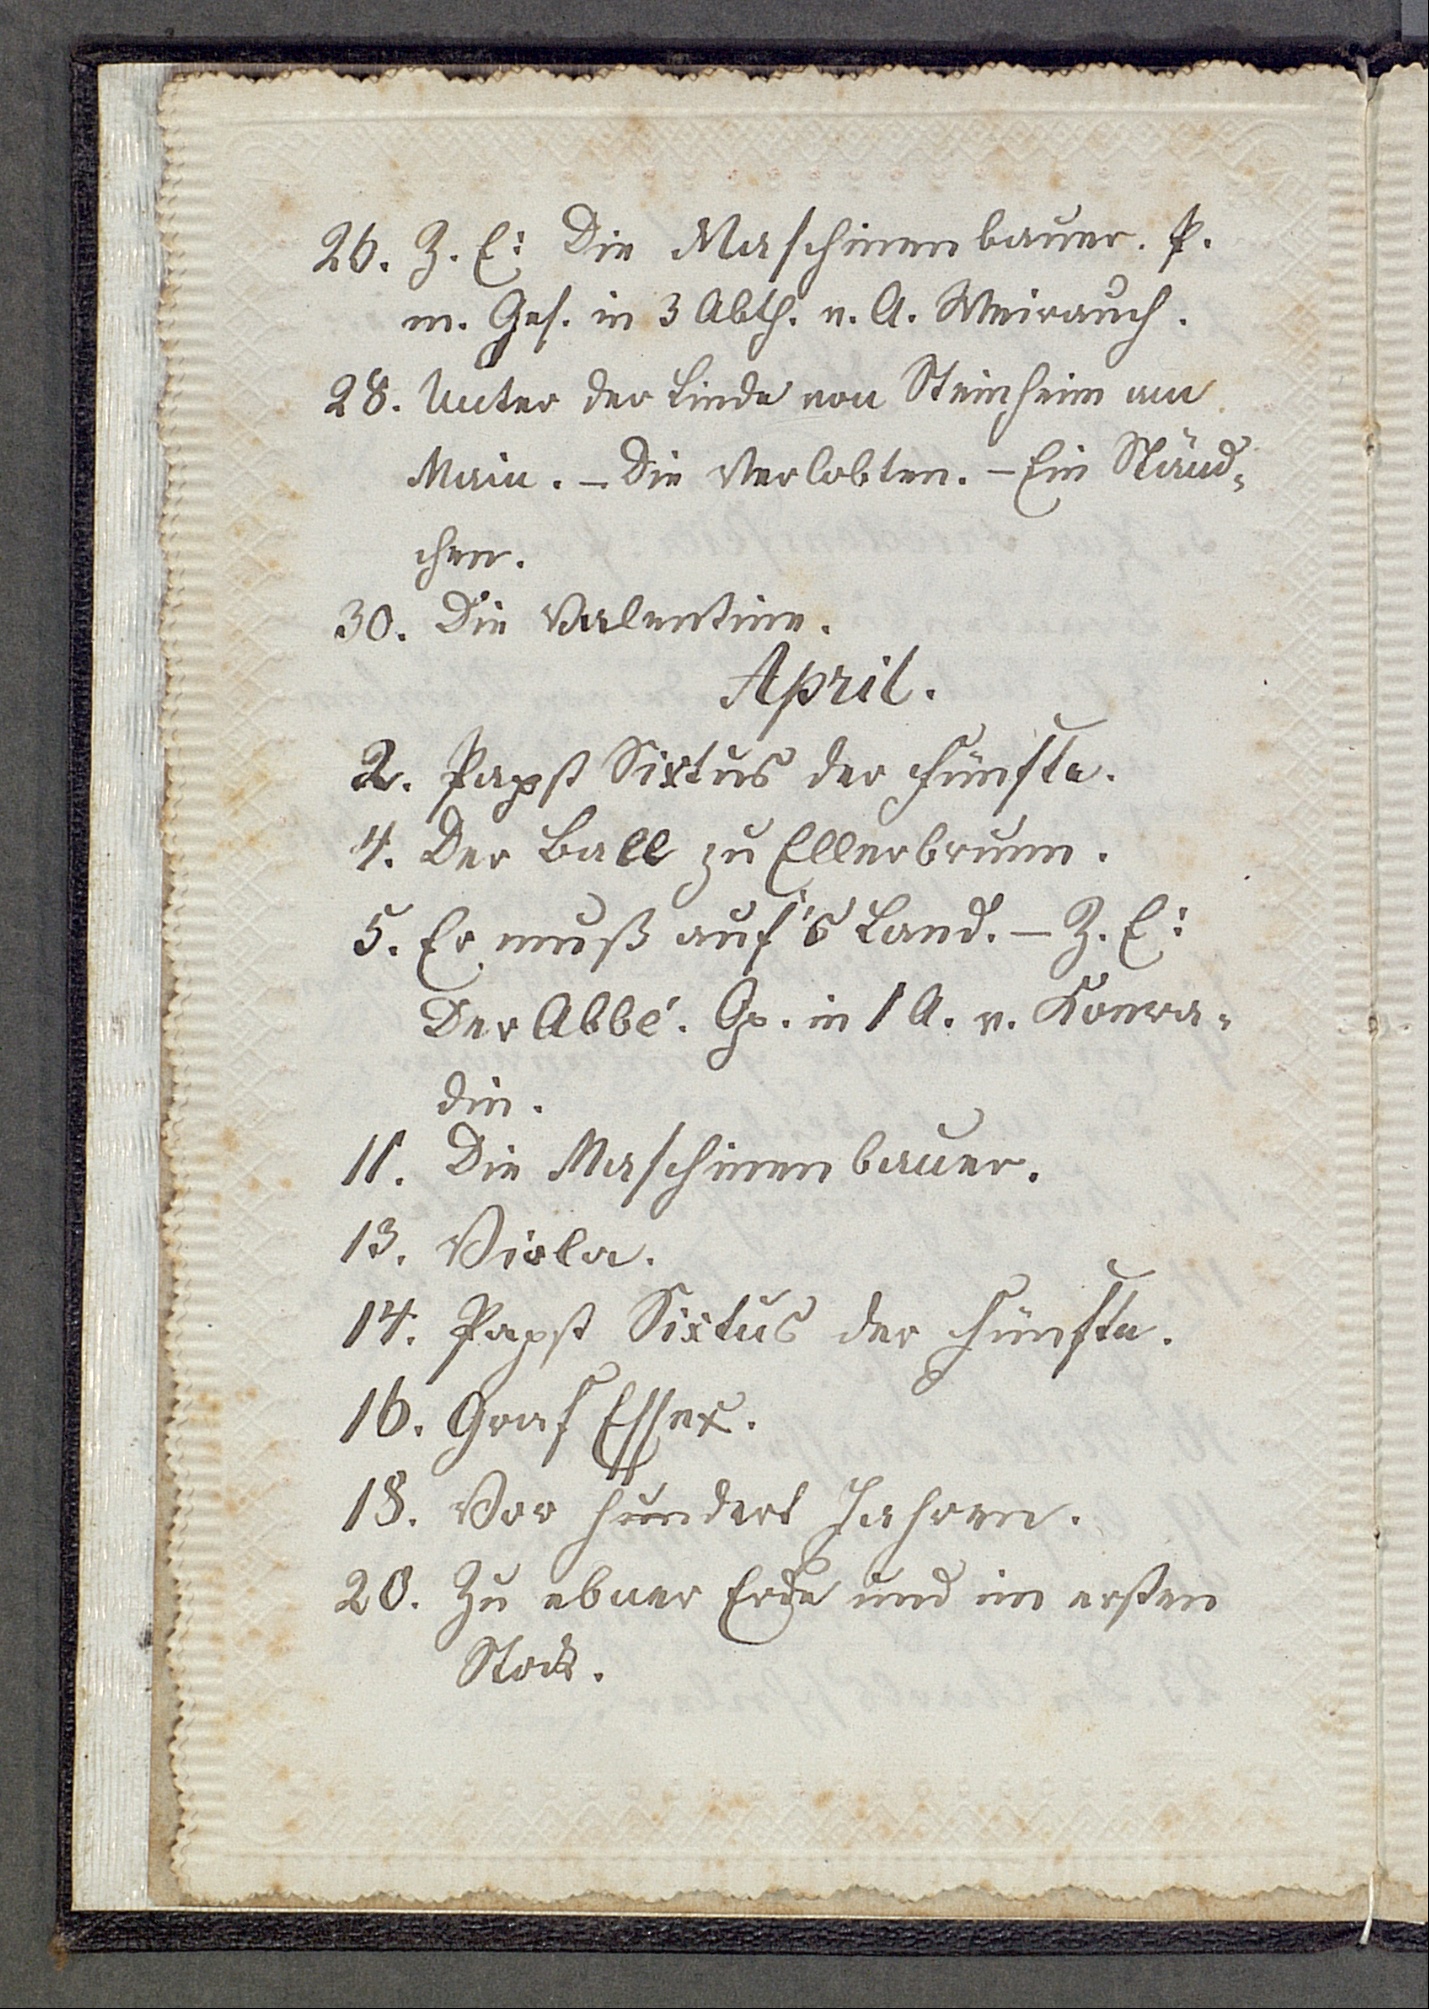 26. Z. E: Die Maschinenbauer. P.
m. Ges. in 3 Abth. v. A. Weirauch.
28. Unter der Linde von Steinheim am
Main. – Die Verlobten. – Ein Ständ-
chen.
30. Die Valentine.
April.
2. Papst Sixtus der Fünfte.
4. Der Ball zu Ellerbrunn.
5. Er muß auf's Land. – Z. E:
Der Abbé. Op. in 1 A. v. Konra-
din.
11. Die Maschinenbauer.
13. Viola.
14. Papst Sixtus der Fünfte.
16. Graf Essex.
18. Vor hundert Jahren.
20. Zu ebner Erde und im ersten
Stock.